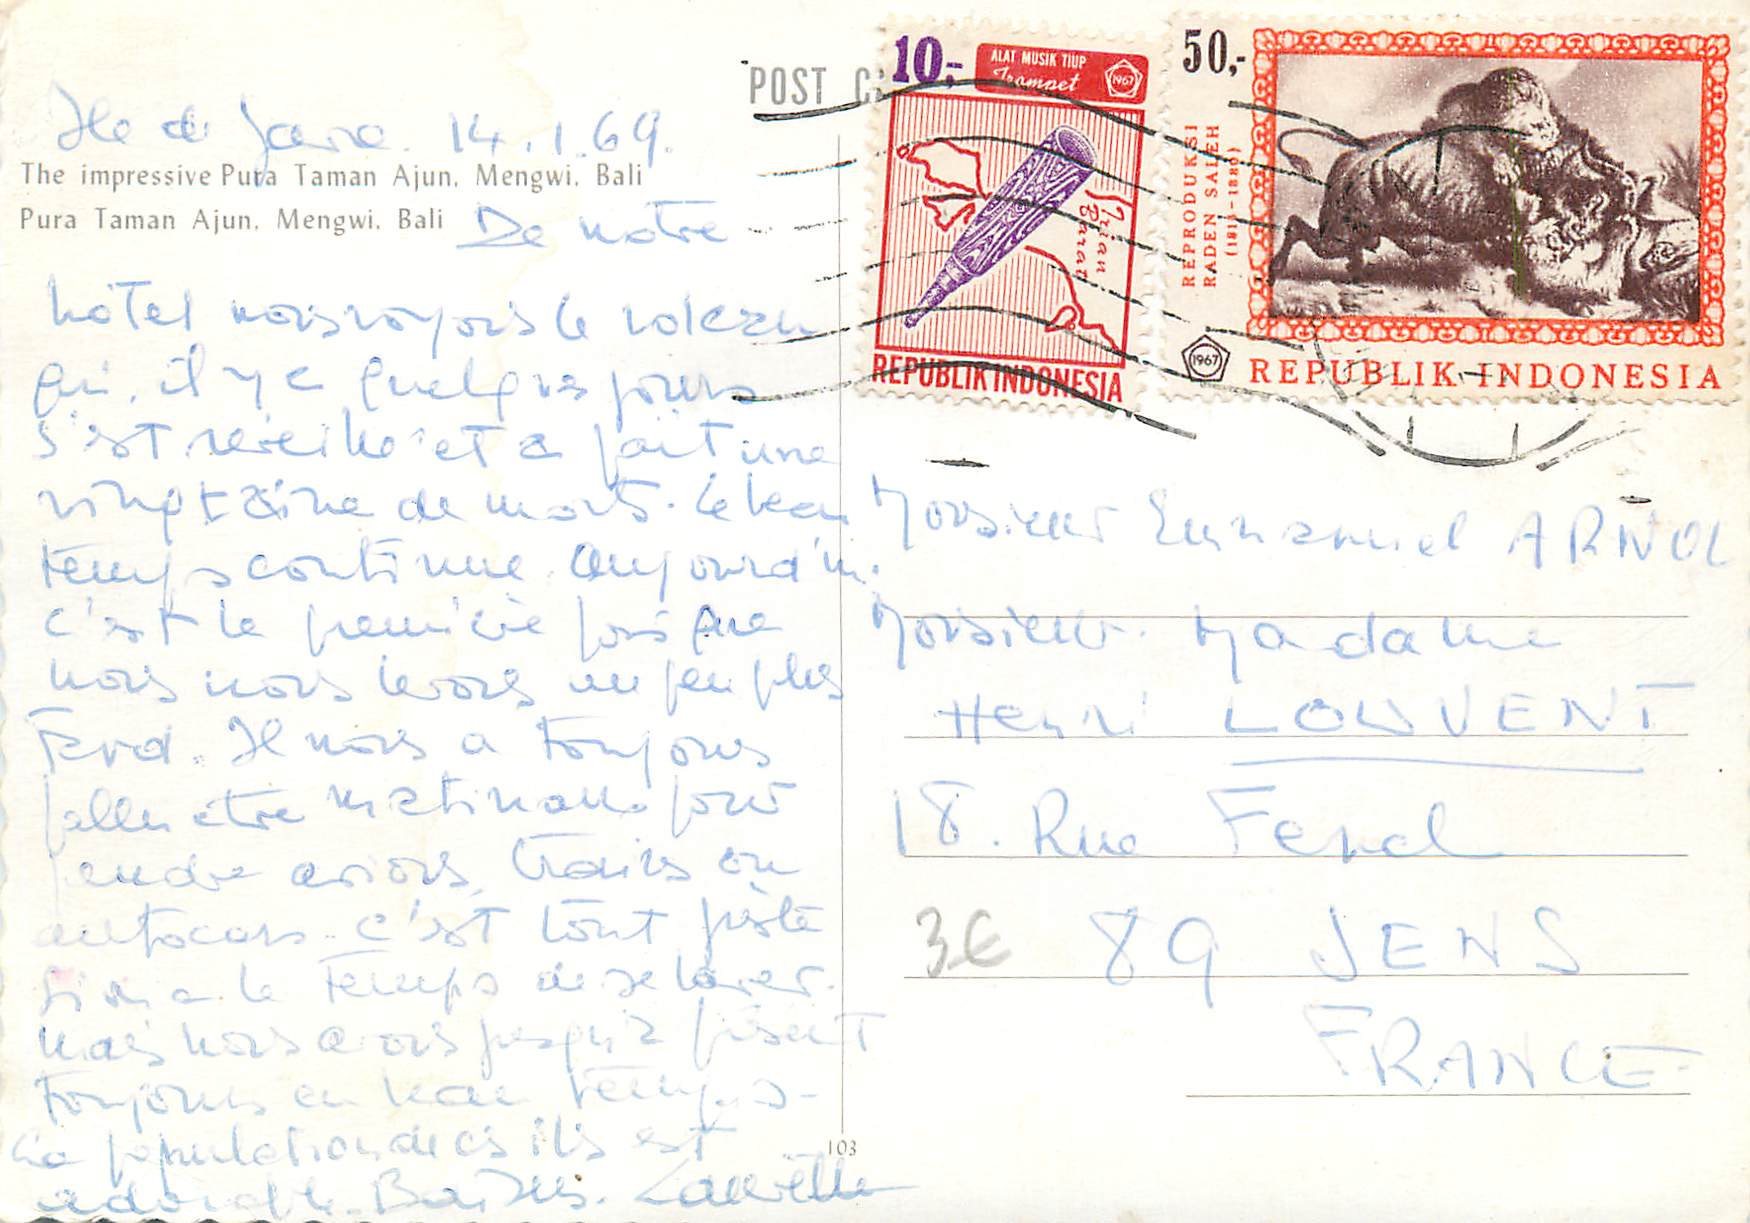 POST C
10,-
ALAT MUSIK TIUP
Trompet
1967
Irian
Barat
REPUBLIK INDONESIA
50,-
REPRODUKSI
RADEN SALEH
(1813-1880)
1967
REPUBLIK INDONESIA
Ile de Java. 14.1.69.
The impressive Pura Taman Ajun, Mengwi, Bali
Pura Taman Ajun, Mengwi, Bali
De notre
hôtel nous voyons le volcan
qui, il y a quelques jours
s'est réveillé et a fait une
vingtaine de morts. Le beau
temps continue. Aujourd'hui
c'est la première fois que
nous nous levons un peu plus
tard. Il nous a toujours
fallu être matinaux pour
prendre avions, trains ou
autocars. c'est tout juste
si on a le temps de se laver.
mais nous avons jusqu'à présent
toujours eu beau temps-
La population de ces iles est
adorable. Baisers. Laurette
103
Monsieur Emmanuel ARNOL
Monsieur. Madame
Henri LOUVENT
18. Rue Fenel
3€
89 SENS
FRANCE